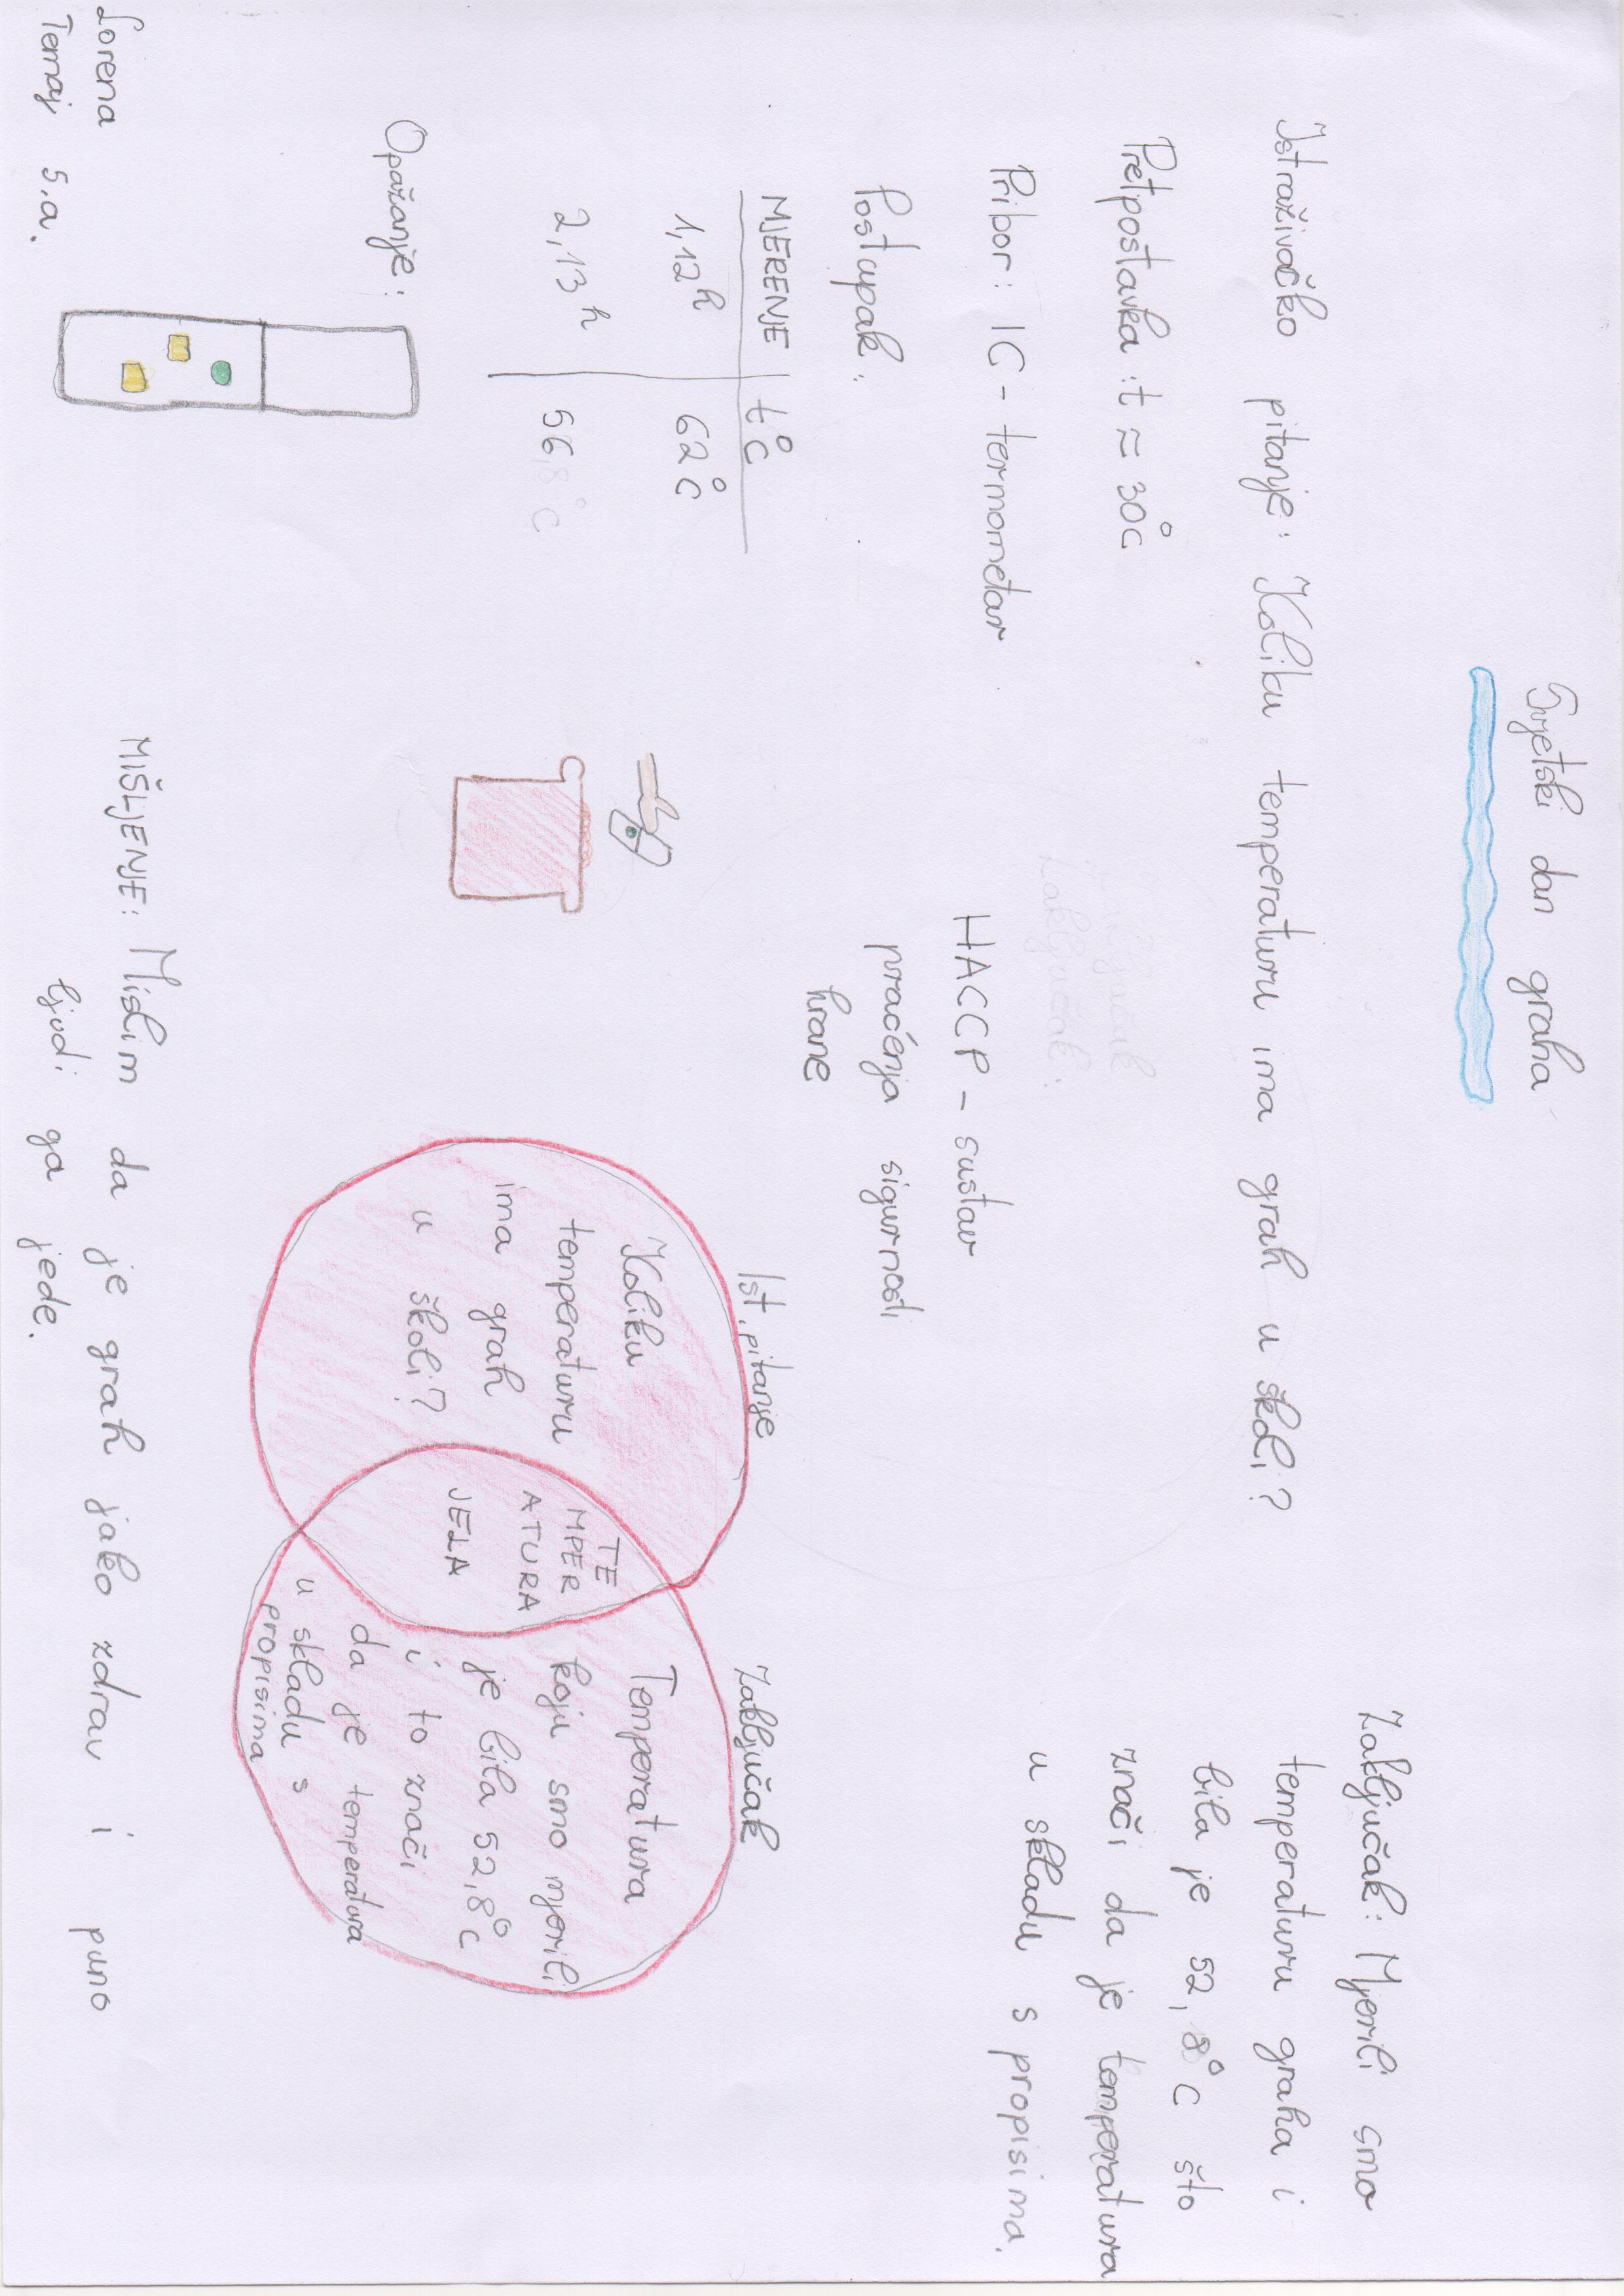 Svjetski dan graha
Istraživačko pitanje: Koliku temperaturu ima grah u školi?
Pretpostavka: t ≈ 30°C
Pribor: IC - termometar
Postupak:
MJERENJE t°C
1, 12h 62°C
2, 13h 56,8°C
Opažanje:
Lorena
Temaj 5.a.
HACCP - sustav
praćenja sigurnosti
hrane
Zaključak: Mjerili smo
temperaturu graha i
bila je 52,8°C što
znači da je temperatura
u skladu s propisima.
Ist. pitanje
Koliku
temperaturu
ima grah
u školi?
TE
MPER
ATURA
JELA
Zaključak
Temperatura
koju smo mjerili
je bila 52,8°C
i to znači
da je temperatura
u skladu s
propisima
MIŠLJENJE: Mislim da je grah jako zdrav i puno
ljudi ga jede.